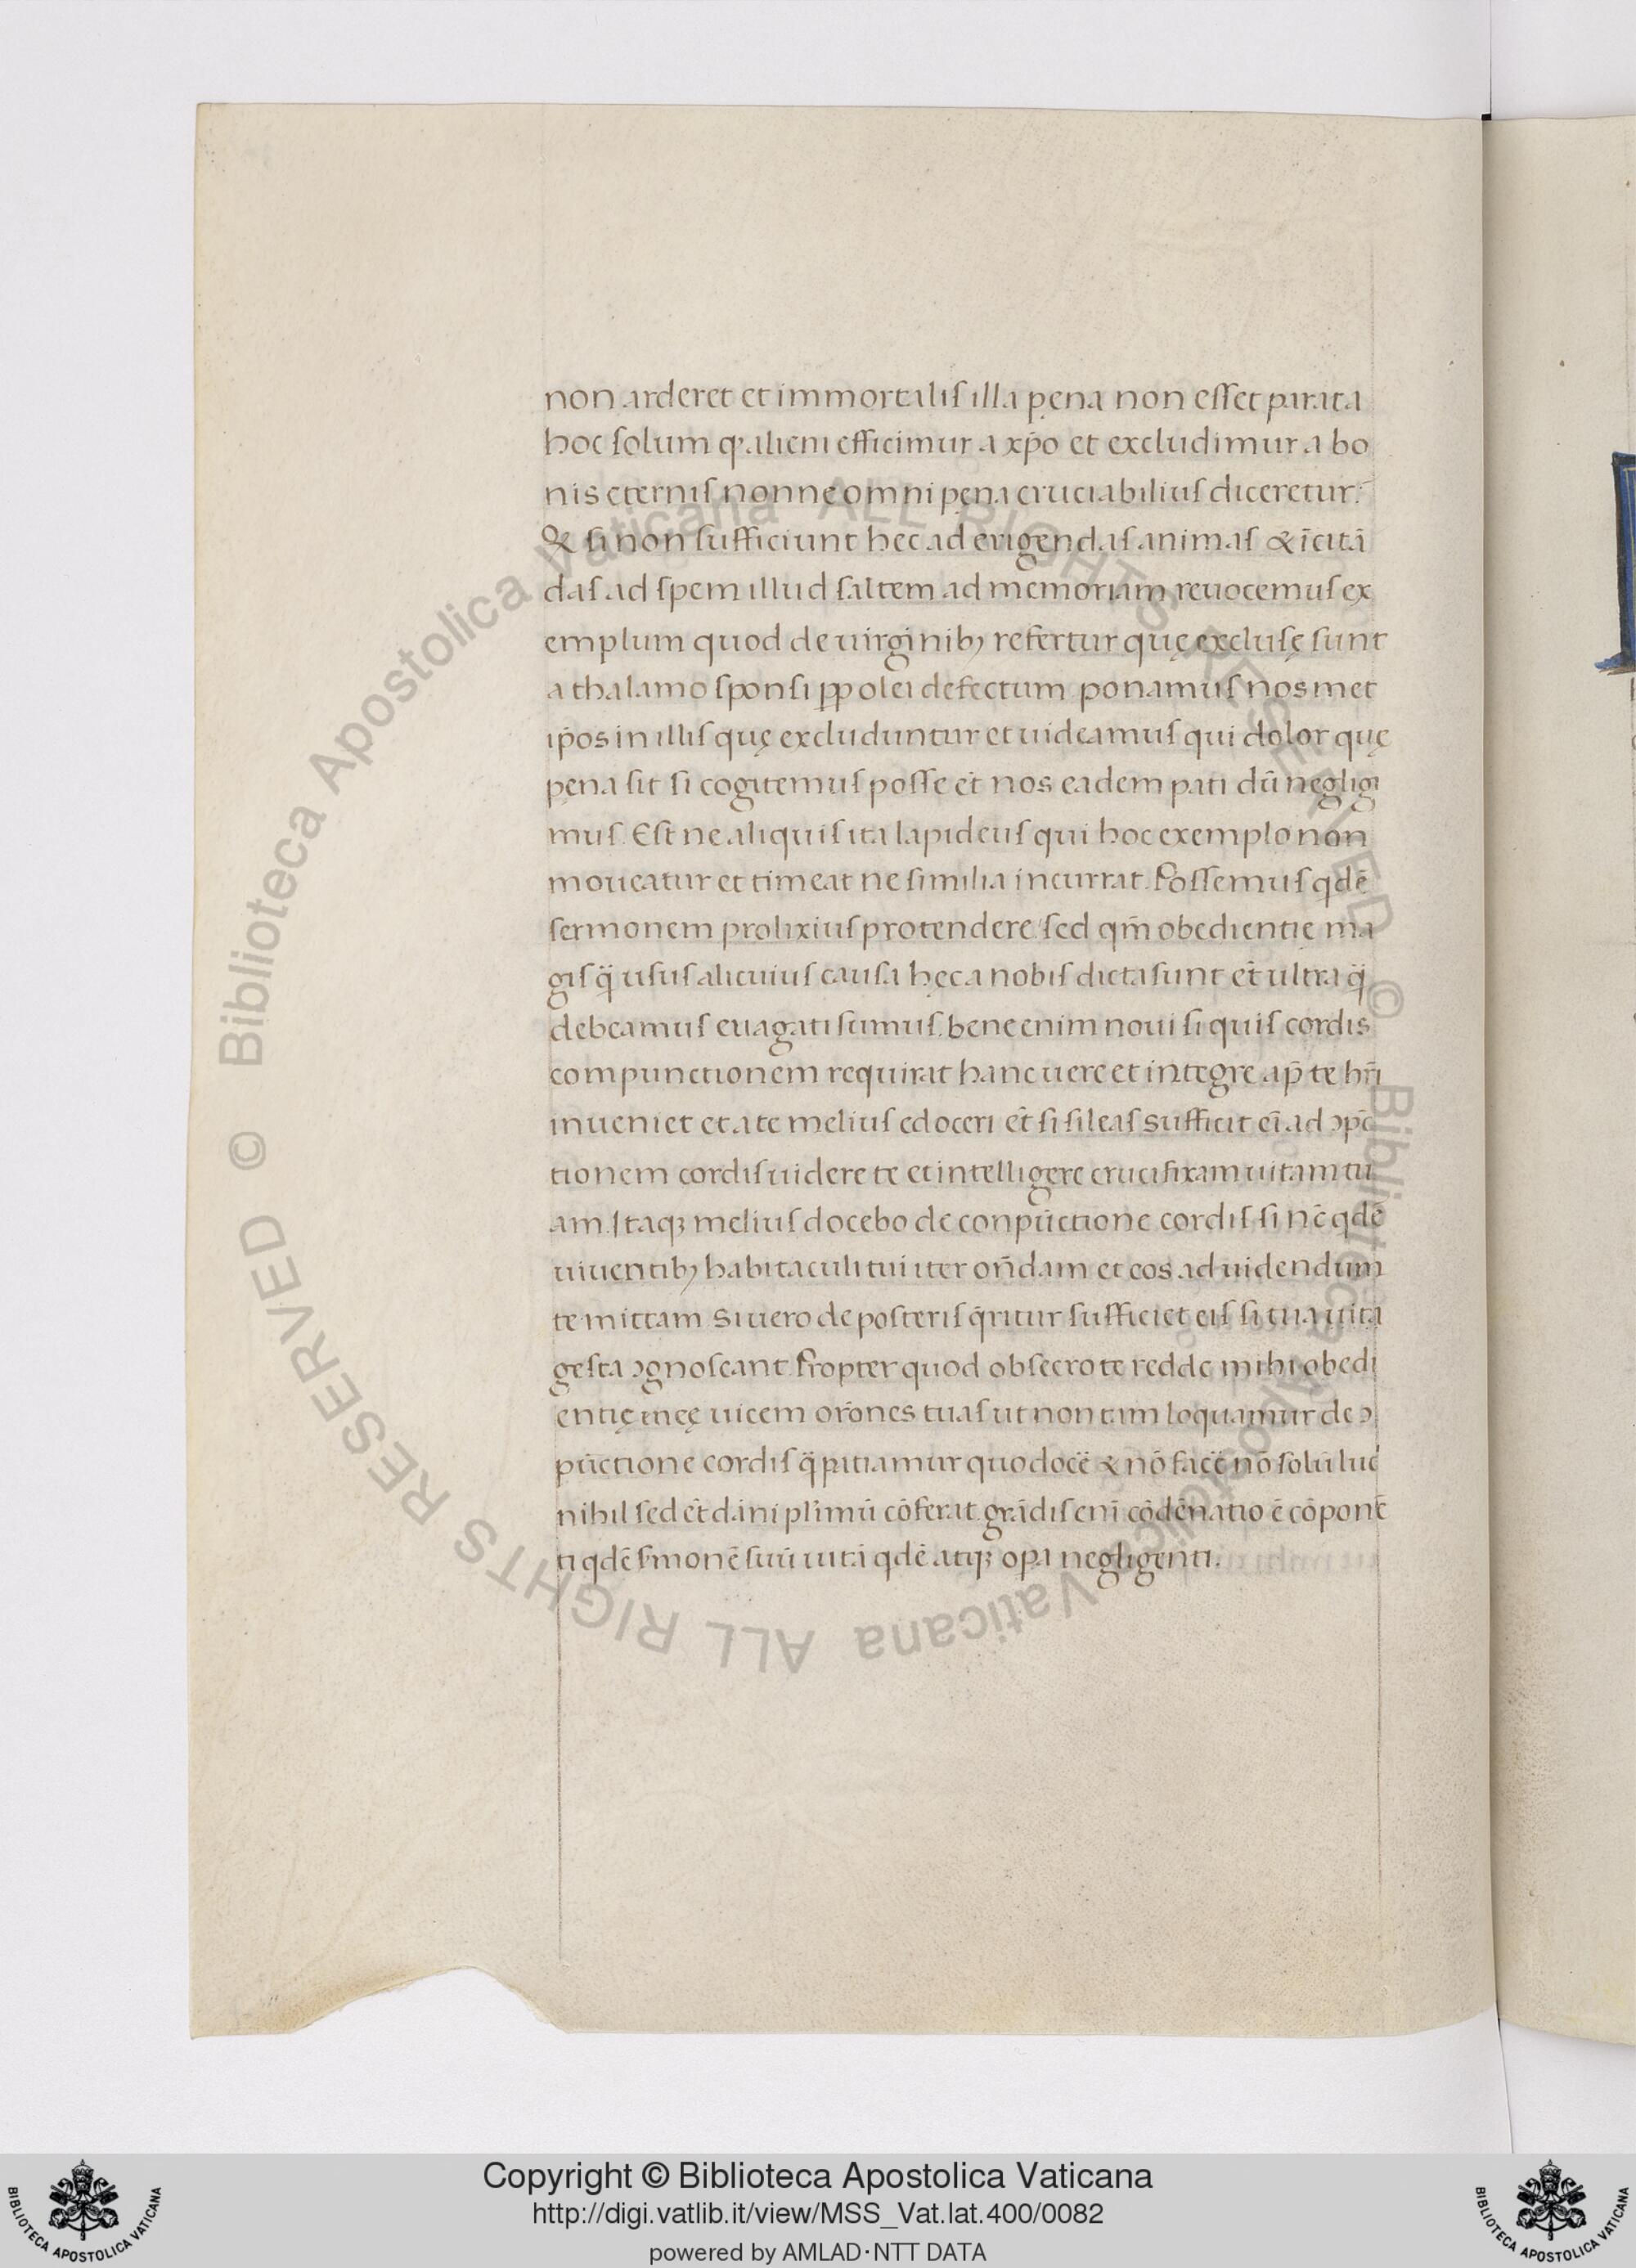 non arderet et immortaliſ illa pena non eſſet parata
hoc ſolum ꝙ alieni efficimur a xp̄o et excludimur a bo
nis eterniſ nonne omni pęna cruciabiliuſ diceretur.
& ſi non ſufficiunt hec ad erigendaſ animaſ & īcitā
daſ ad ſpem illud ſaltem ad memoriam reuocemuſ ex
emplum quod de uirginibꝫ refertur quę excluſę ſunt
a thalamo ſponſi ꝓp olei defectum ponamuſ nosmet
ip̄os in illiſ quę excluduntur et uideamuſ qui dolor quę
pęna ſit ſi cogitemuſ poſſe et̄ nos eadem pati dū negligi
muſ. Eſt ne aliquiſ ita lapideuſ qui hoc exemplo non
moueatur et timeat ne ſimilia incurrat. Poſſemuſ qdē
ſermonem prolixiuſ protendere ſed qm̄ obedientię ma
giſ q̄ uſuſ alicuiuſ cauſa hęc a nobiſ dicta ſunt et̄ ultra q̄
debeamuſ euagati ſumuſ. bene enim noui ſi quiſ cordis
compunctionem requirat hanc uere et integre ap̄ te hr̄i
inueniet et a te meliuſ edoceri et̄ ſi ſileaſ sufficit eī ad ↄpc̄
tionem cordiſ uidere te et intelligere crucifixam uitam tu
am. Itaqꝫ meliuſ docebo de conpūctione cordiſ ſi nē qdē
uiuentibꝫ habitaculi tui iter on̄dam et eos ad uidendum
te mittam Si uero de poſteriſ q̄ritur ſufficiet eiſ ſi tua uita
geſta ↄgnoſcant. Propter quod obſecro te redde mihi obedi
entię meę uicem or̄ones tuaſ ut non tam loquamur de ↄ
pūctione cordiſ q̄ patiamur quo docē & nō facē nō ſolū luc̄
nihil ſed et̄ dāni pl'imū cōferat. grādiſ enī cōdēnatio ē cōponē
ti qdē ſ'monē ſuū uitā qdē atqꝫ opa negligenti.
Biblioteca Apostolica Vaticana ALL RIGHTS RESERVED ©
Biblioteca Apostolica Vaticana ALL RIGHTS RESERVED ©
Copyright © Biblioteca Apostolica Vaticana
http://digi.vatlib.it/view/MSS_Vat.lat.400/0082
powered by AMLAD·NTT DATA
BIBLIOTECA APOSTOLICA VATICANA
BIBLIOTECA APOSTOLICA VATICANA